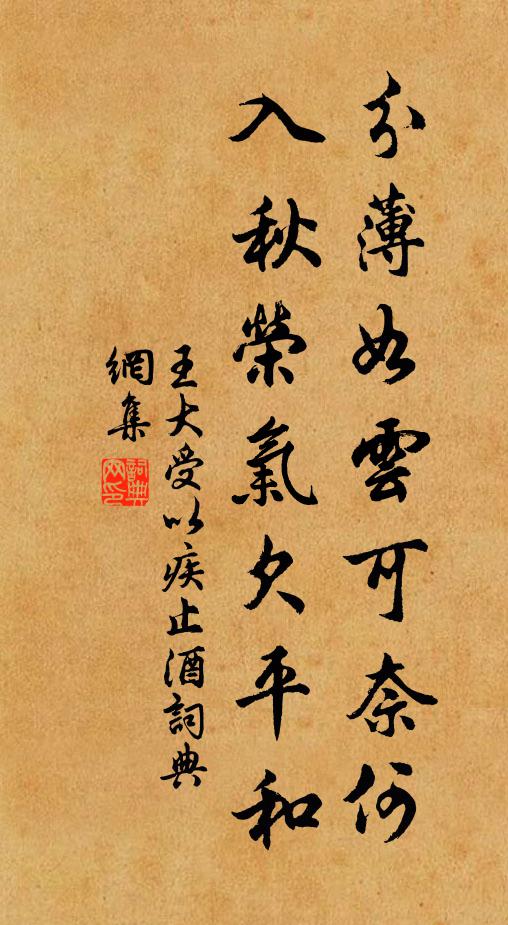 分薄如雲可奈何
入秋榮氣欠平和
王大受以疾止酒詞典
網集
詞典
网印